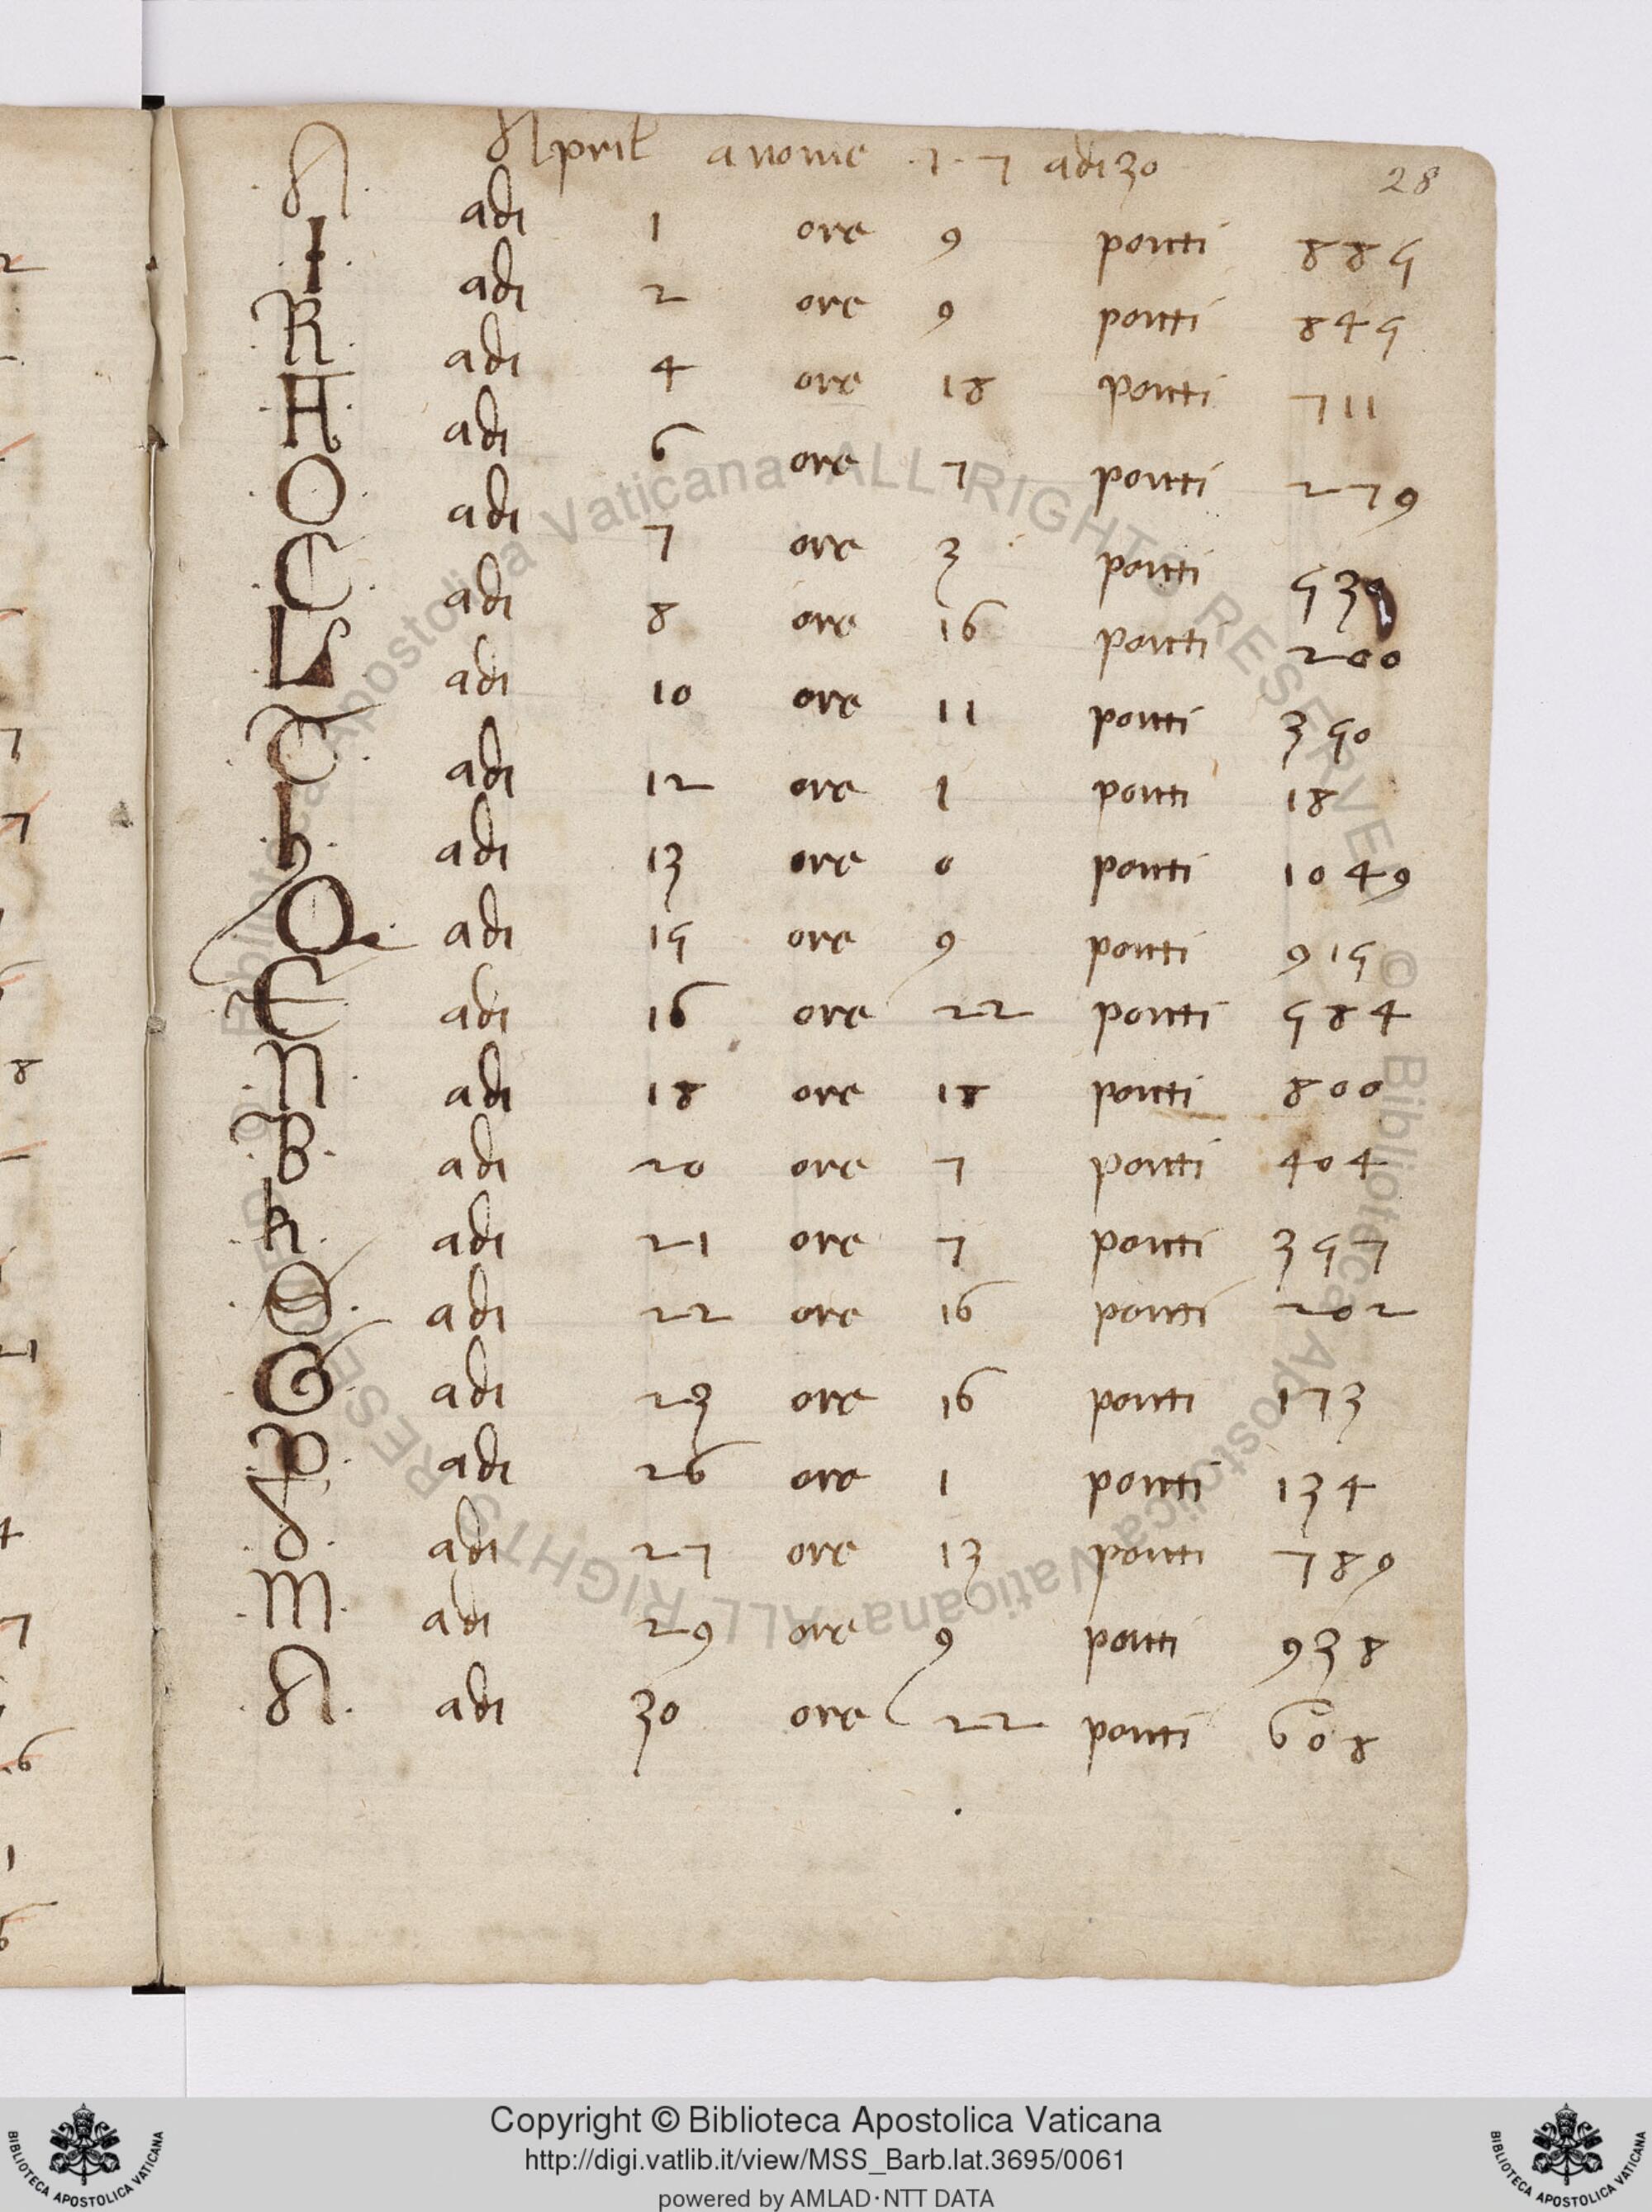 April a nome .1.7 adi 30
28
.A. adi 1 ore 9 ponti 885
.I. adi 2 ore 9 ponti 845
R. adi 4 ore 18 ponti 711
.H. adi 6 ore 7 ponti 279
.O. adi 7 ore 3 ponti 539
.C. adi 8 ore 16 ponti 200
L adi 10 ore 11 ponti 350
adi 12 ore 1 ponti 18
.b. adi 13 ore 0 ponti 1049
Q. adi 15 ore 9 ponti 915
.E. adi 16 ore 22 ponti 584
.N. adi 18 ore 18 ponti 800
.B. adi 20 ore 7 ponti 404
.h. adi 21 ore 7 ponti 357
adi 22 ore 16 ponti 202
.G. adi 23 ore 16 ponti 173
.B. adi 26 ore 1 ponti 134
adi 27 ore 13 ponti 789
.M. adi 29 ore 9 ponti 938
.A. adi 30 ore 22 ponti 608
© Biblioteca Apostolica Vaticana ALL RIGHTS RESERVED
© Biblioteca Apostolica Vaticana ALL RIGHTS RESERVED
Copyright © Biblioteca Apostolica Vaticana
http://digi.vatlib.it/view/MSS_Barb.lat.3695/0061
powered by AMLAD·NTT DATA
BIBLIOTECA APOSTOLICA VATICANA
BIBLIOTECA APOSTOLICA VATICANA